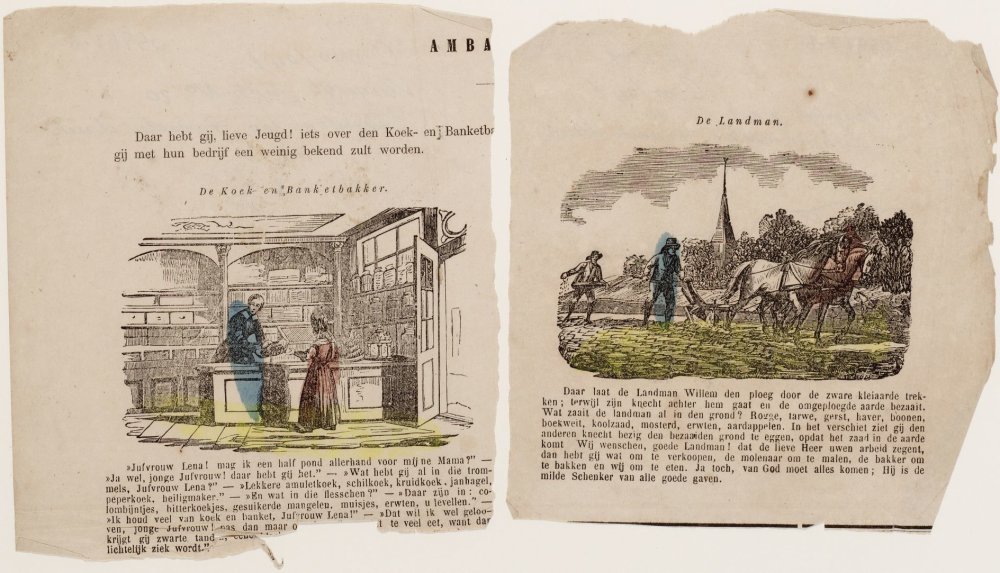 AMBA
Daar hebt gij, lieve Jeugd! iets over den Koek- en Banketb
gij met hun bedrijf een weinig bekend zult worden.
De Koek- en Banketbakker.
»Jufvrouw Lena! mag ik een half pond allerhand voor mijne Mama?” —
»Ja wel, jonge Jufvrouw! daar hebt gij het.” — »Wat hebt gij al in die trom-
mels, Jufvrouw Lena?” — »Lekkere amuletkoek, schilkoek, kruidkoek, janhagel,
peperkoek, heiligmaker.” — »En wat in die flesschen?” — »Daar zijn in: co-
lombijntjes, bitterkoekjes, gesuikerde mangelen, muisjes, erwten, ulevellen.” —
»Ik houd veel van koek en banket, Jufvrouw Lena!” — »Dat wil ik wel geloo-
ven, jonge Jufvrouw! pas dan maar o t te veel eet, want dan
krijgt gij zwarte tand
lichtelijk ziek wordt.”
De Landman.
Daar laat de Landman Willem den ploeg door de zware kleiaarde trek-
ken; terwijl zijn knecht achter hem gaat en de omgeploegde aarde bezaait.
Wat zaait de landman al in den grond? Rogge, tarwe, gerst, haver, boonen,
boekweit, koolzaad, mosterd, erwten, aardappelen. In het verschiet ziet gij den
anderen knecht bezig den bezaaiden grond te eggen, opdat het zaad in de aarde
komt. Wij wenschen, goede Landman! dat de lieve Heer uwen arbeid zegent,
dan hebt gij wat om te verkoopen, de molenaar om te malen, de bakker om
te bakken en wij om te eten. Ja toch, van God moet alles komen; Hij is de
milde Schenker van alle goede gaven.